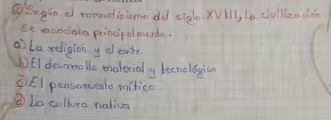 ② Según el romanticismo del siglo XVIII, la civilización
se asociaba principalmente.
a) La religión y el arte
b) El desarrollo material y tecnológico
c) El pensamiento mítico
d) La cultura nativa